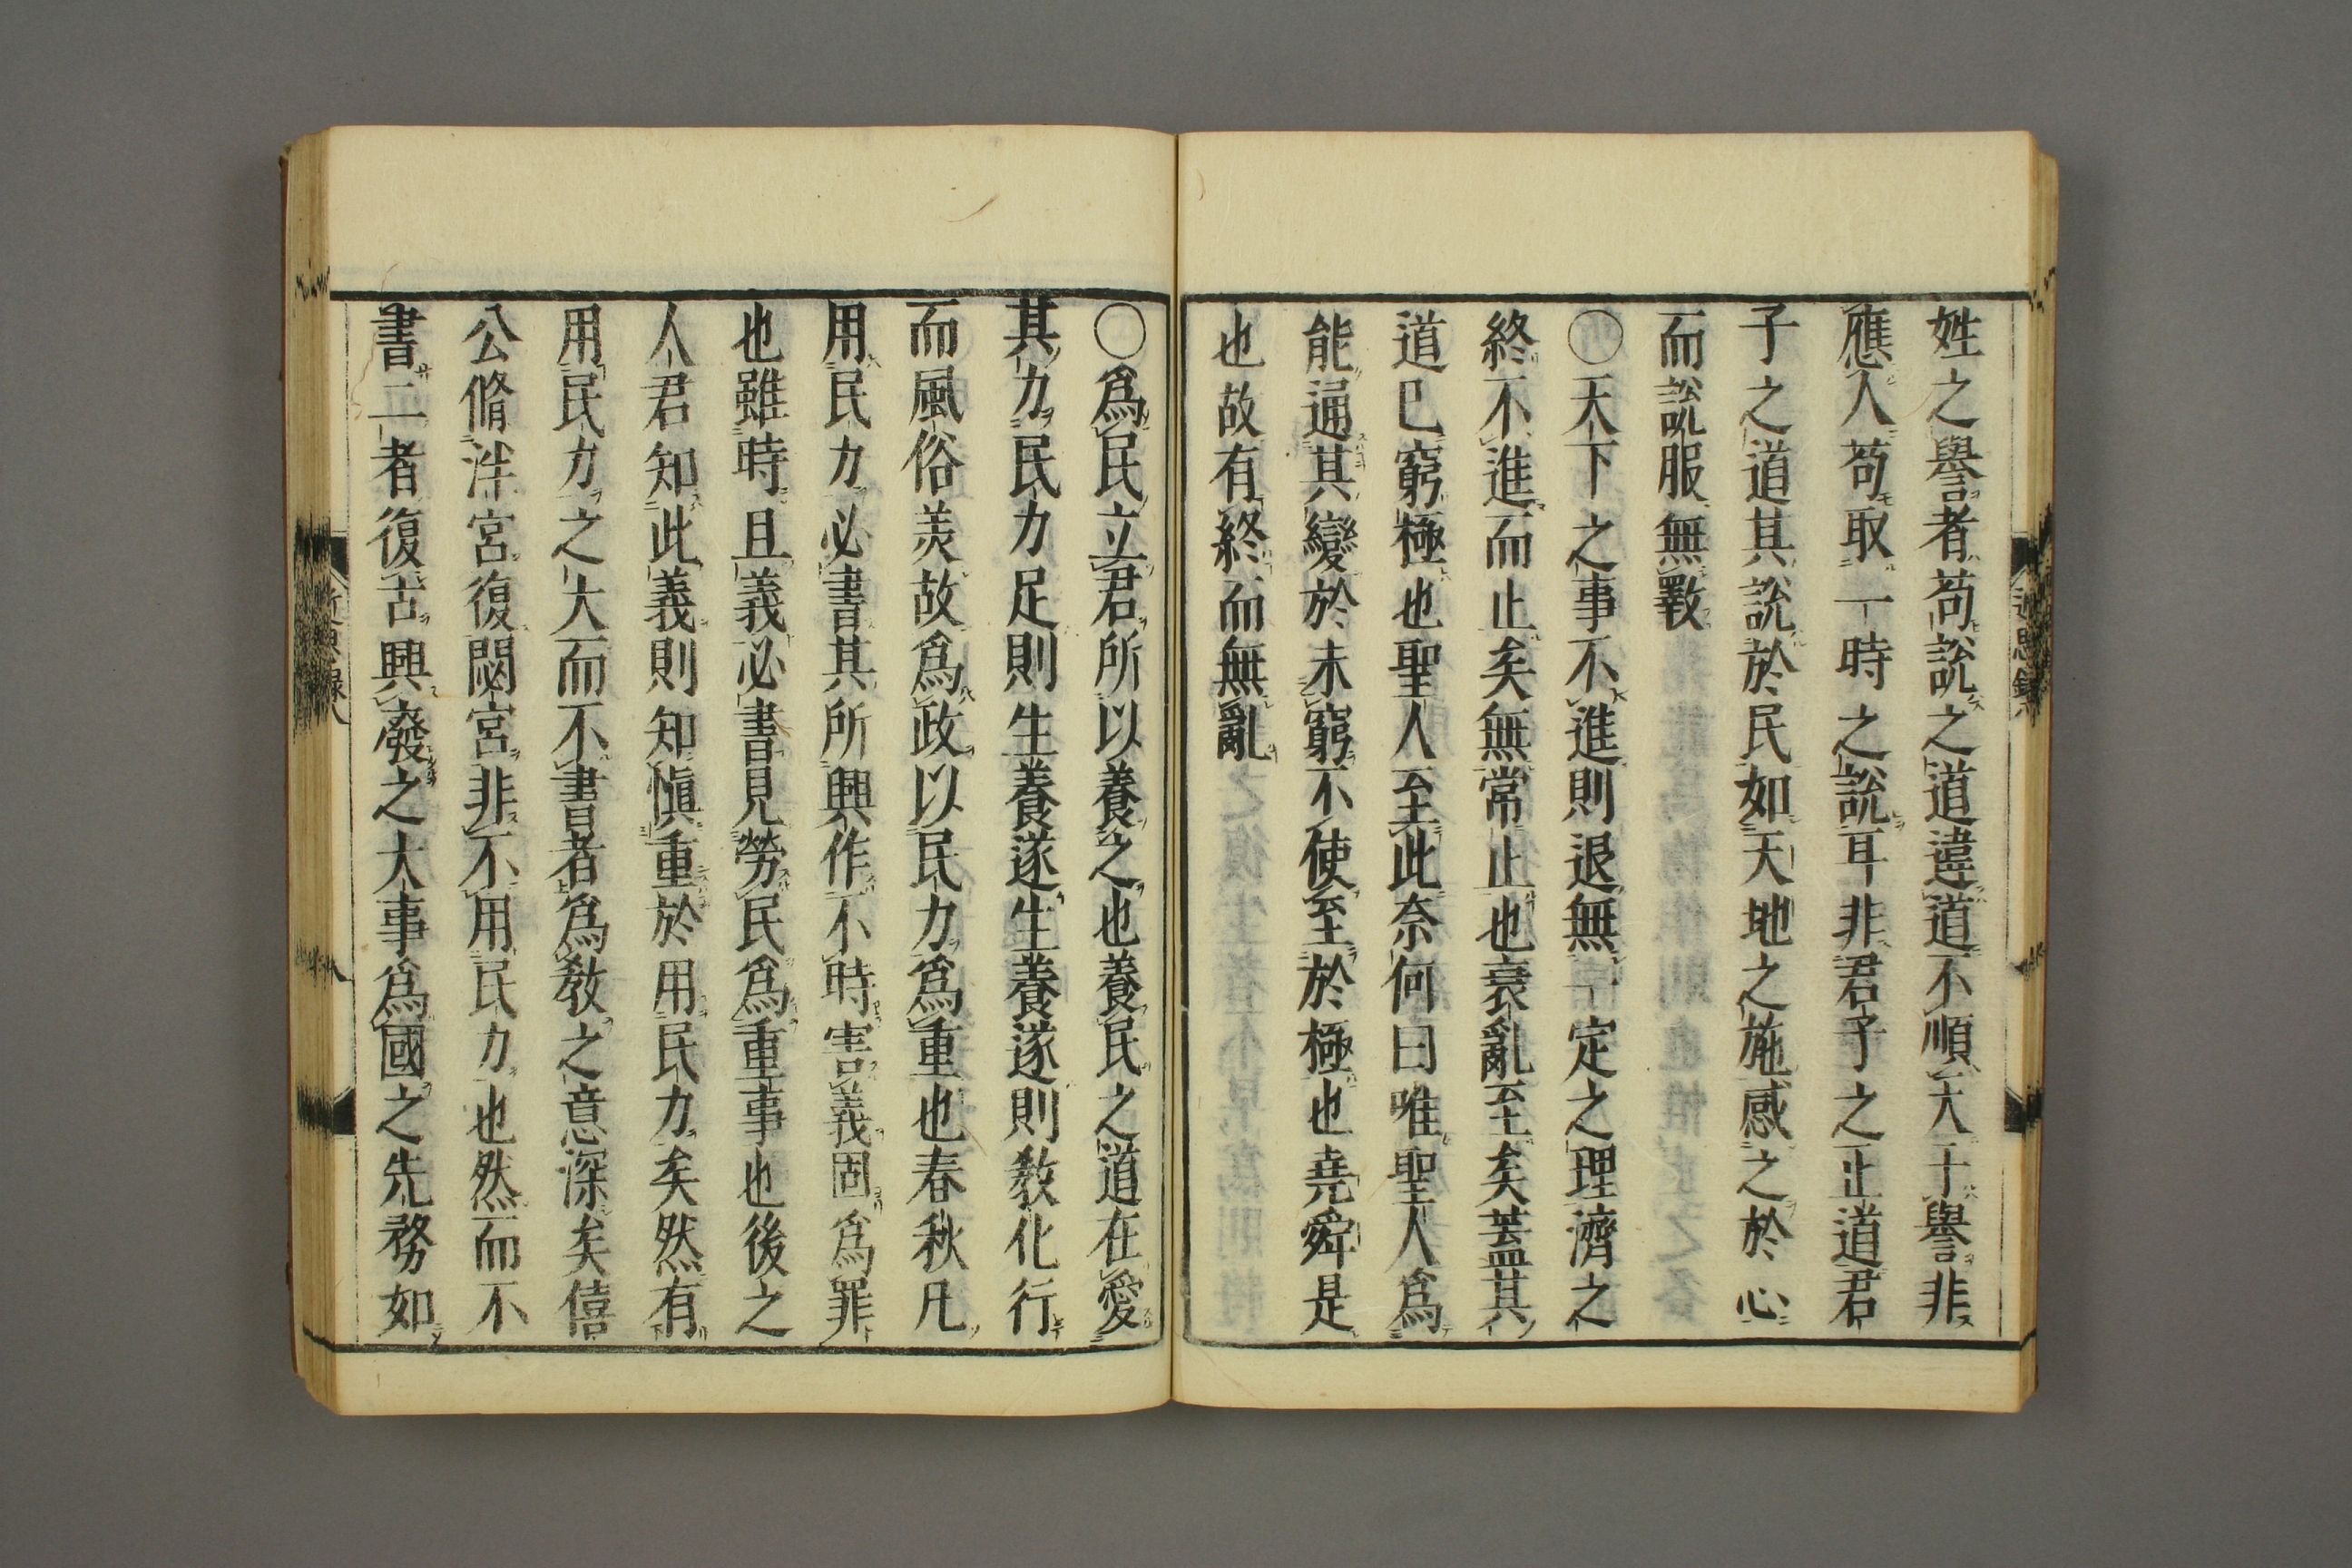 姓之譽者苟說之道違道不順天干譽非
應人苟取一時之說耳非君子之正道君
子之道其說於民如天地之施感之於心
而說服無斁
○天下之事不進則退無一定之理濟之
終不進而止矣無常止也衰亂至矣蓋其
道已窮極也聖人至此奈何曰唯聖人爲
能通其變於未窮不使至於極也堯舜是
也故有終而無亂
○爲民立君所以養之也養民之道在愛
其力民力足則生養遂生養遂則教化行
而風俗美故爲政以民力爲重也春秋凡
用民力必書其所興作不時害義固爲罪
也雖時且義必書見勞民爲重事也後之
人君知此義則知愼重於用民力矣然有
用民力之大而不書者爲教之意深矣僖
公脩泮宮復閟宮非不用民力也然而不
書二者復古興廢之大事爲國之先務如